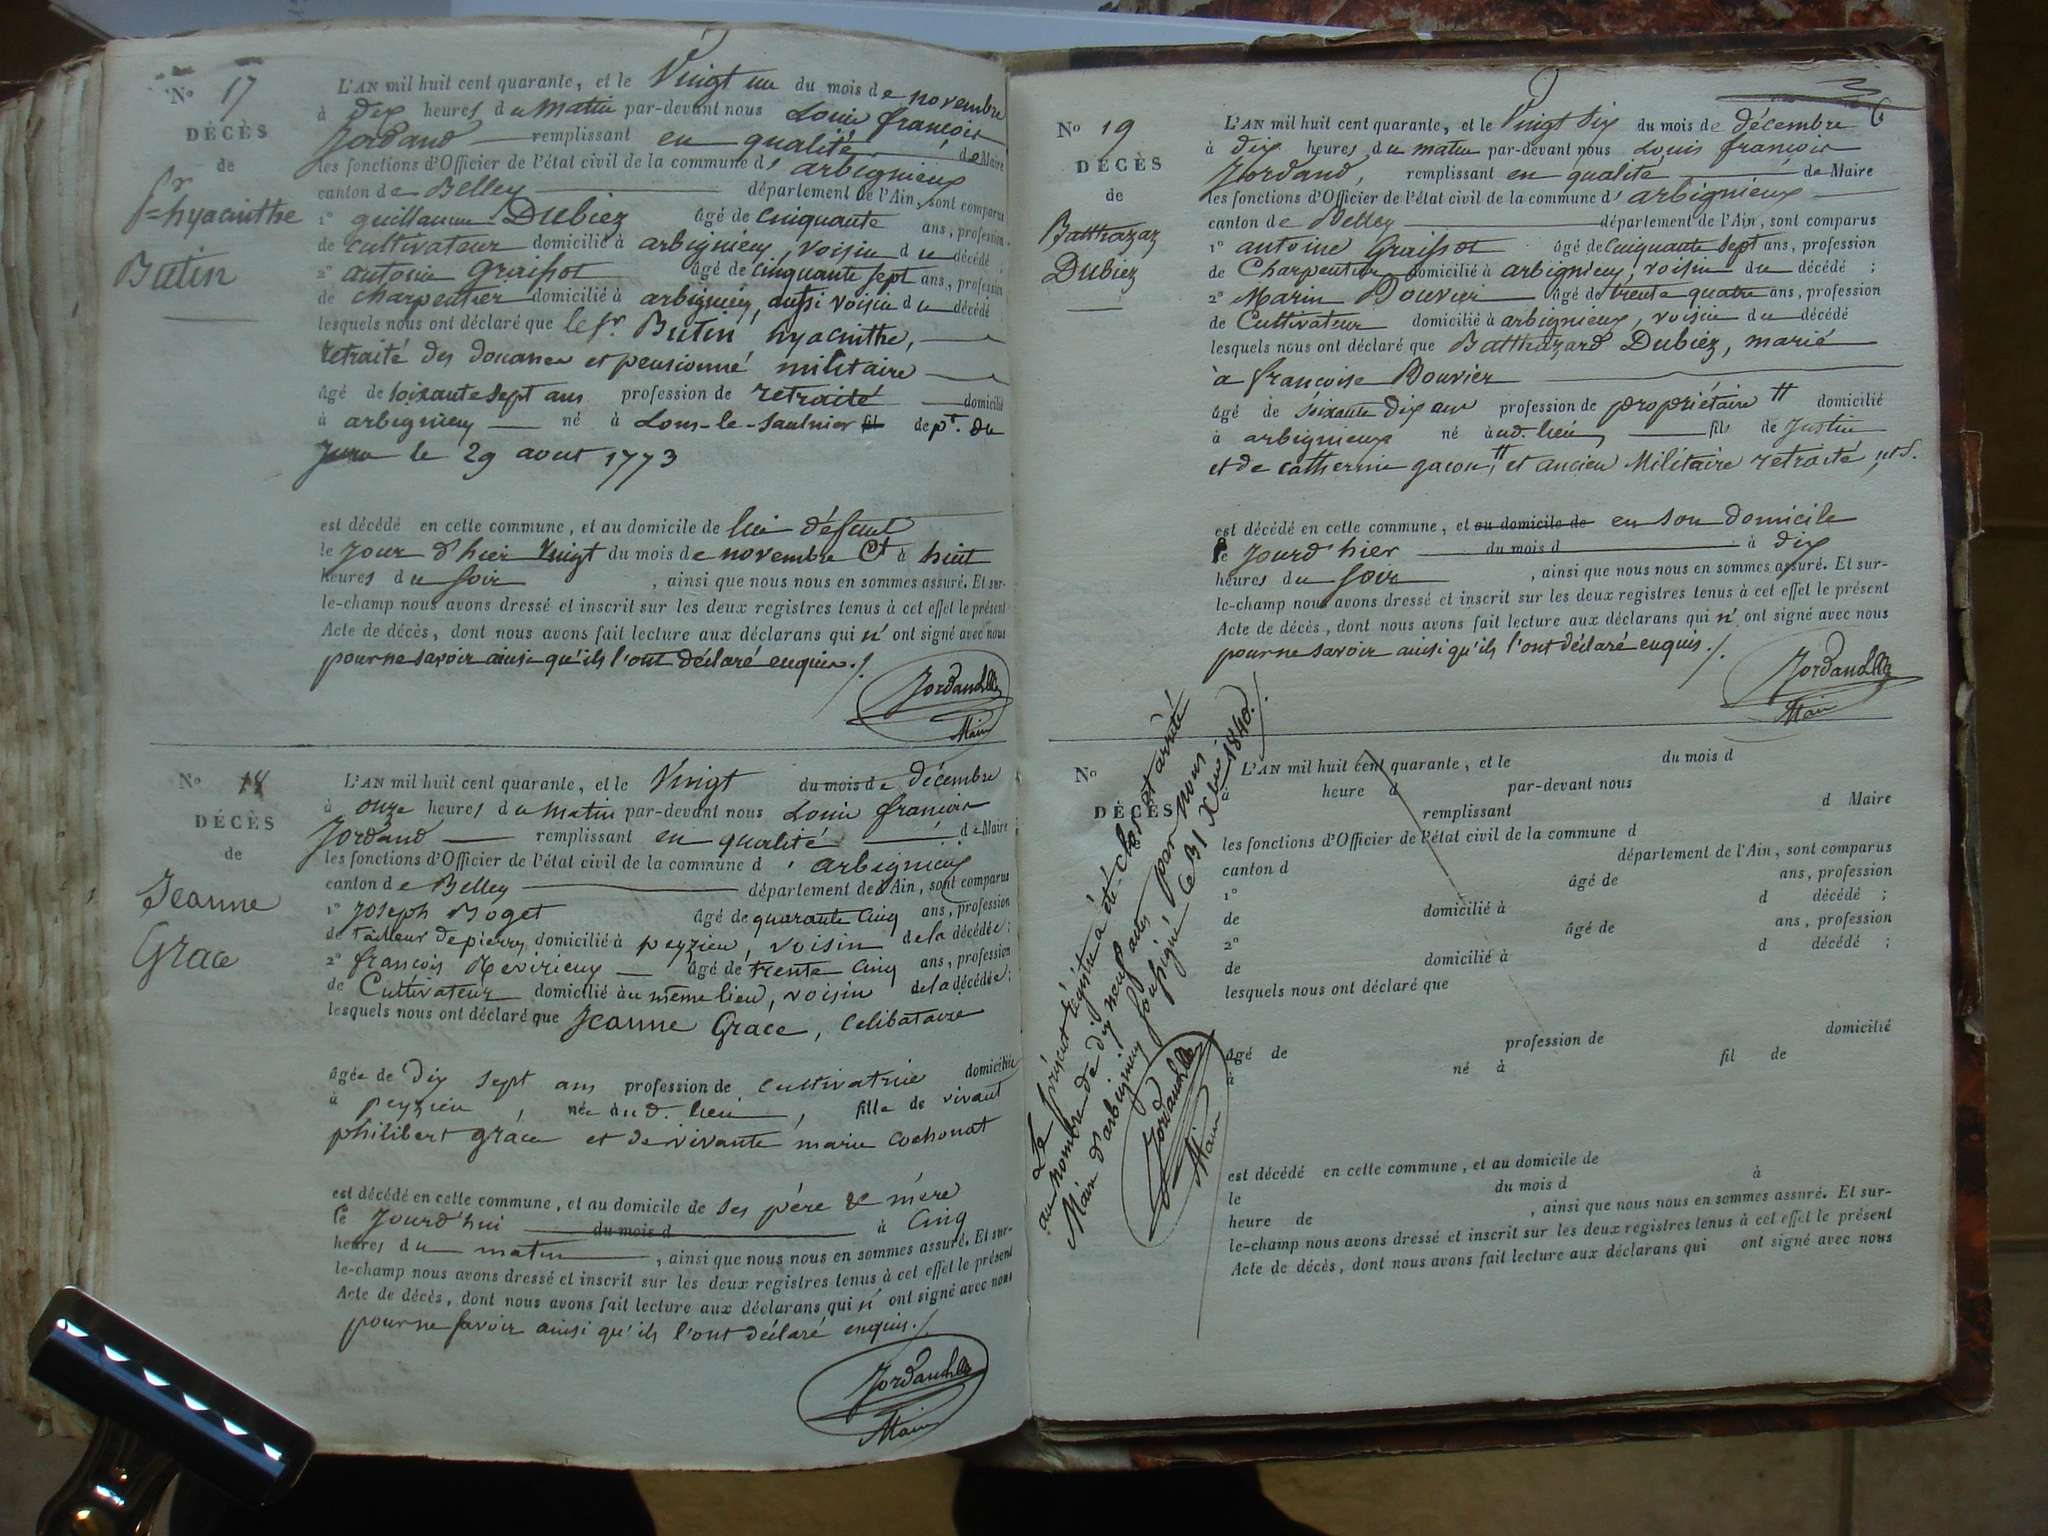 N° 17
DÉCÈS
de
Sr hyacinthe
Butin
L'AN mil huit cent quarante, et le Vingt un du mois de novembre
à dix heures du matin par-devant nous Louis françois
Jordand remplissant en qualité de Maire
les fonctions d'Officier de l'état civil de la commune d'arbignieux
canton de Belley département de l'Ain, sont comparus
1° guillaume Dubiez âgé de cinquante ans, profession
de cultivateur domicilié à arbignieux, voisin du décédé ;
2° antoine Graissot âgé de cinquante sept ans, profession
de charpentier domicilié à arbignieux, aussi voisin du décédé
lesquels nous ont déclaré que le Sr Butin hyacinthe,
retraité des douanes et pensionné militaire
âgé de soixante sept ans profession de retraité domicilié
à arbignieux né à Lons-le-Saulnier fil dept. du
Jura le 29 aout 1773
est décédé en cette commune, et au domicile de lui défunt
le jour d'hier Vingt du mois de novembre Ct à huit
heures du soir , ainsi que nous nous en sommes assuré. Et sur-
le-champ nous avons dressé et inscrit sur les deux registres tenus à cet effet le présent
Acte de décès, dont nous avons fait lecture aux déclarans qui n'ont signé avec nous
pour ne savoir ainsi qu'ils l'ont déclaré enquis ./.
Jordand
Maire
N° 18
DÉCÈS
de
Jeanne
Grace
L'AN mil huit cent quarante, et le Vingt du mois de décembre
à onze heures du matin par-devant nous Louis françois
Jordand remplissant en qualité de Maire
les fonctions d'Officier de l'état civil de la commune d'arbignieux
canton de Belley département de l'Ain, sont comparus
1° Joseph Boget âgé de quarante cinq ans, profession
de tailleur de pierres domicilié à peyzieu, voisin de la décédée ;
2° françois Révirieux âgé de trente cinq ans, profession
de Cultivateur domicilié au même lieu, voisin de la décédée ;
lesquels nous ont déclaré que Jeanne Grace, celibataire
âgée de dix sept ans profession de cultivatrice domiciliée
à peyzieu, née à ud. lieu, fille de vivant
philibert grace et de vivante marie cochonat
est décédé en cette commune, et au domicile de ses père & mère
le jourd'hui du mois d à cinq
heures du matin , ainsi que nous nous en sommes assuré. Et sur-
le-champ nous avons dressé et inscrit sur les deux registres tenus à cet effet le présent
Acte de décès, dont nous avons fait lecture aux déclarans qui n'ont signé avec nous
pour ne savoir ainsi qu'ils l'ont déclaré enquis ./.
Jordand
Maire
N° 19
DÉCÈS
de
Balthazar
Dubiez
L'AN mil huit cent quarante, et le Vingt six du mois de décembre
à dix heures du matin par-devant nous Louis françois
Jordand, remplissant en qualité de Maire
les fonctions d'Officier de l'état civil de la commune d'arbignieux
canton de Belley département de l'Ain, sont comparus
1° antoine Graissot âgé de cinquante sept ans, profession
de Charpentier domicilié à arbignieux, voisin du décédé ;
2° Marin Bouvier âgé de trente quatre ans, profession
de Cultivateur domicilié à arbignieux, voisin du décédé
lesquels nous ont déclaré que Balthazard Dubiez, marié
à françoise Bouvier
âgé de soixante dix ans profession de propriétaire # domicilié
à arbignieux né à ud. lieu fils de Justin
et de catherine gacon, # et ancien Militaire retraité
est décédé en cette commune, et au domicile de en son domicile
le jourd'hier du mois d à dix
heures du soir , ainsi que nous nous en sommes assuré. Et sur-
le-champ nous avons dressé et inscrit sur les deux registres tenus à cet effet le présent
Acte de décès, dont nous avons fait lecture aux déclarans qui n'ont signé avec nous
pour ne savoir ainsi qu'ils l'ont déclaré enquis ./.
Jordand
Maire
Le présent régistre a été clos et arrêté
au nombre de dix neuf actes par nous
Maire d'arbignieux soussigné ce 31 Xbre 1840 ./.
Jordand
Maire
N°
DÉCÈS
L'AN mil huit cent quarante, et le du mois d
à heure d par-devant nous
remplissant d Maire
les fonctions d'Officier de l'état civil de la commune d
canton d département de l'Ain, sont comparus
1° âgé de ans, profession
de domicilié à d décédé ;
2° âgé de ans, profession
de domicilié à d décédé ;
lesquels nous ont déclaré que
âgé de profession de domicilié
à né à fil de
est décédé en cette commune, et au domicile de
le du mois d à
heure de , ainsi que nous nous en sommes assuré. Et sur-
le-champ nous avons dressé et inscrit sur les deux registres tenus à cet effet le présent
Acte de décès, dont nous avons fait lecture aux déclarans qui ont signé avec nous